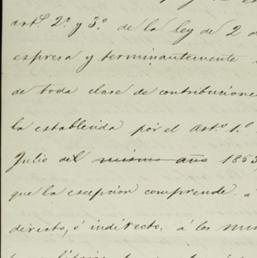 artº. 2º. y 3º. de la ley de 2
espresa y terminantemente
de toda clase de contribucione
la establecida por el artº. 1º.
Julio del mismo año 1853
que la escepcion comprende a
directo, é indirecto, á los